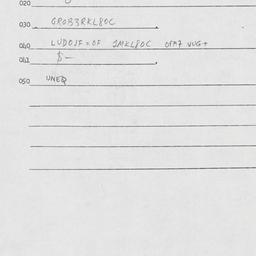 020
030 GROB3RKL80C
040 LUDOJF=OF 1MKL80C OFM7 VUG+
041 $-
050 UNEQ